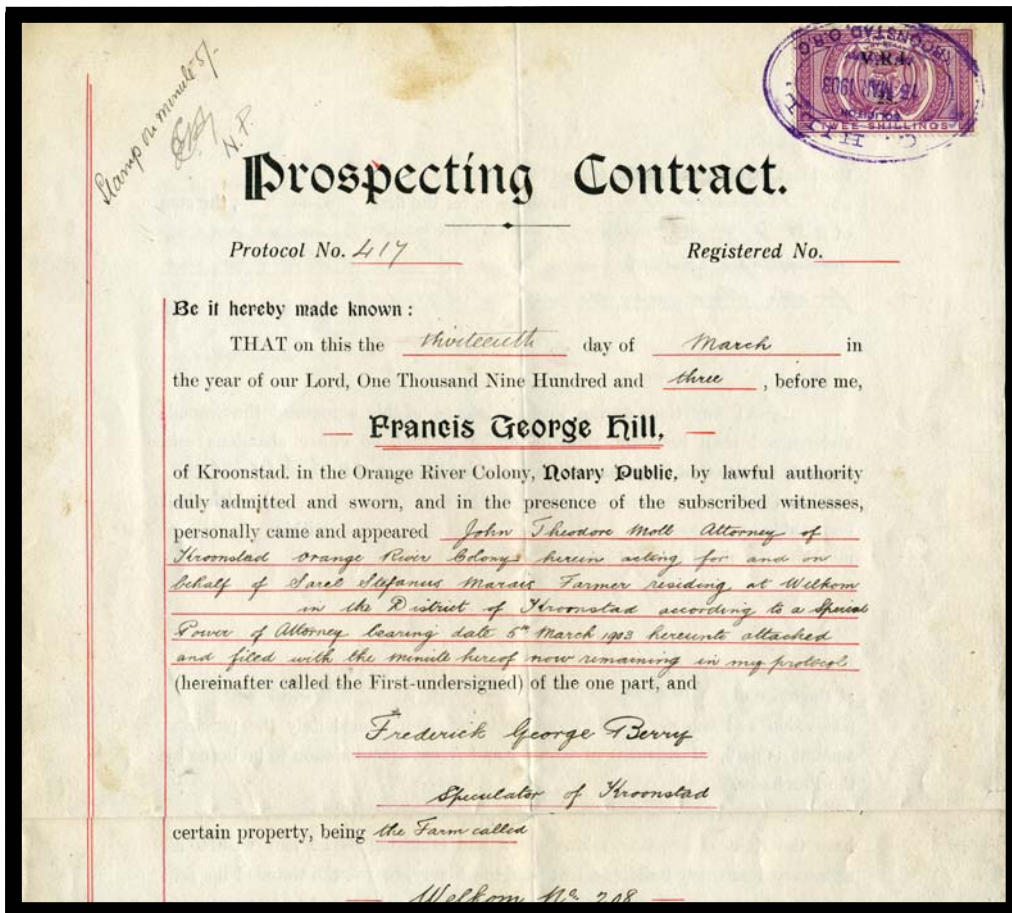 Stamp on minute 5/-
N.P.
KROONSTAD O.R.C.
V.R.I.
15 MAR 1903
TWEE SHILLINGS
Prospecting Contract.
Protocol No. 417 Registered No.
Be it hereby made known :
THAT on this the thirteenth day of March in
the year of our Lord, One Thousand Nine Hundred and three , before me,
Francis George Hill,
of Kroonstad. in the Orange River Colony, Notary Public, by lawful authority
duly admitted and sworn, and in the presence of the subscribed witnesses,
personally came and appeared John Theodore Moll Attorney of
Kroonstad Orange River Colony herein acting for and on
behalf of Sarel Stefanus Marais Farmer residing at Welkom
in the District of Kroonstad according to a Special
Power of Attorney bearing date 5th March 1903 hereunto attached
and filed with the minute hereof now remaining in my protocol
(hereinafter called the First-undersigned) of the one part, and
Frederick George Berry
Speculator of Kroonstad
certain property, being the Farm called
Welkom No. 208